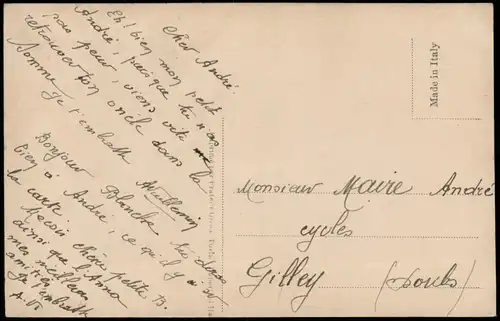 Cher André
Eh! bien mon petit
André, puisque tu n'as
pas peur, viens vite me
retrouver ton oncle dans la
Somme
Je t'embrasse
AVuillemin
Bonjour Blanche tu diras
bien à André, ce qu'il y a sur
la carte.
Reçois chère petite B.
ainsi que l'Anna
mes meilleures
amitiés
Je t'embrasse
A. V.
Made in Italy
Monsieur Maire André
cycles
Gilley (Doubs)